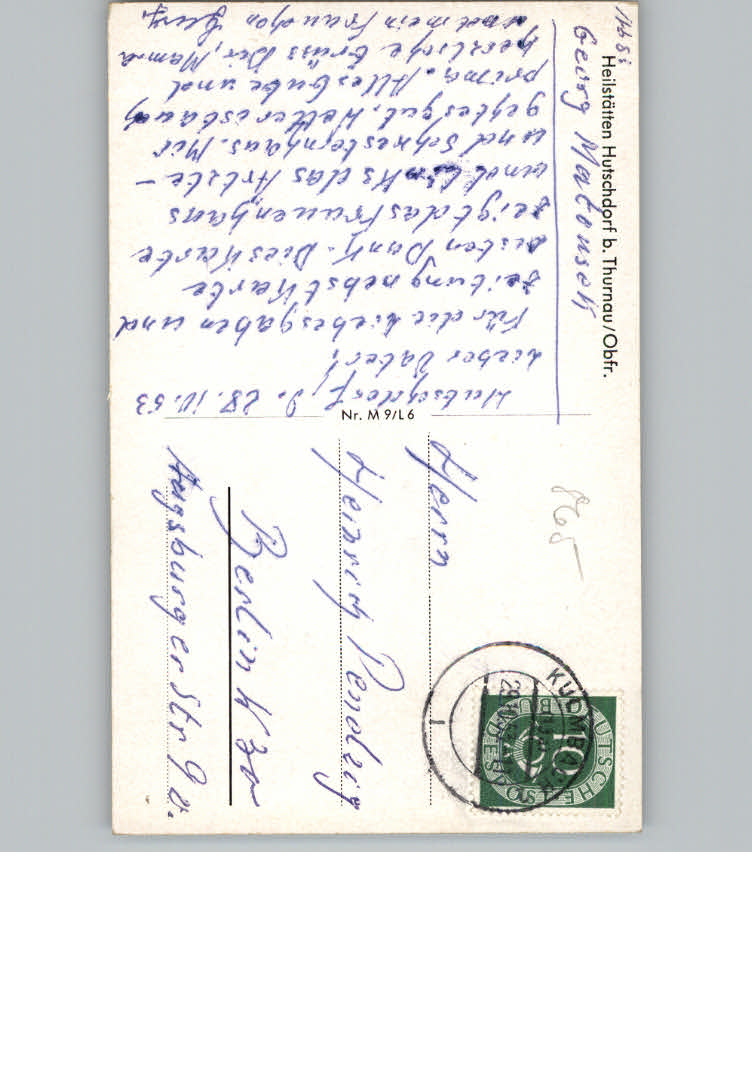 Heilstätten Hutschdorf b. Thurnau/Obfr.
Georg Matousek
Hutschdorf, d. 28.10.53
Lieber Vater!
Für die Liebesgaben und
Zeitung nebst Karte
besten Dank. Dies Karte
zeigt das Frauenhaus
und links das Ärzte-
und Schwesternhaus. Mir
geht es gut. Wetter ist auch
prima. Alles Gute und
herzliche Grüsse Dir, Mama
und mein Frauchen Georg.
Nr. M 9/L 6
Herrn
Heinrich
Berlin W 30
Augsburger Str 9 v.
KULMBACH
DEUTSCHE BUNDESPOST
10